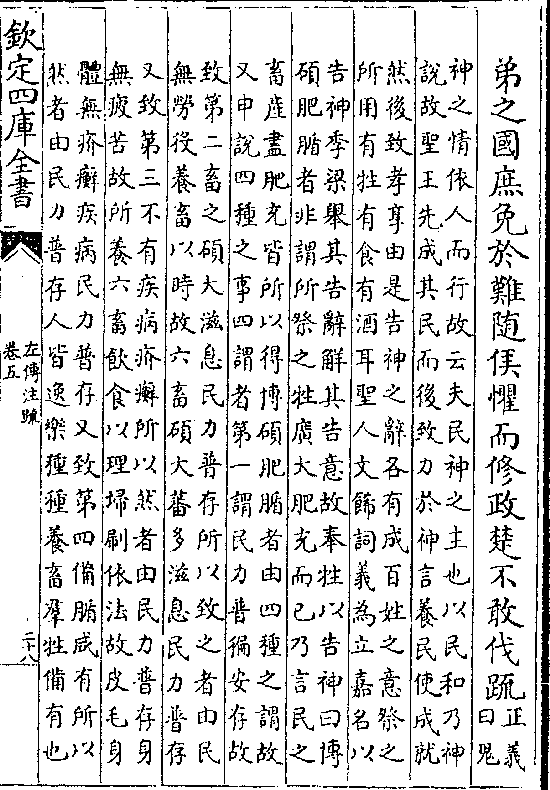 弟之國庶免於難隨侯懼而修政楚不敢伐疏
正義
曰鬼
神之情依人而行故云夫民神之主也以民和乃神
說故聖王先成其民而後致力於神言養民使成就
然後致孝享由是告神之辭各有成百姓之意祭之
所用有牲有食有酒耳聖人文飾詞義為立嘉名以
告神季梁舉其告辭解其告意故奉牲以告神曰博
碩肥腯者非謂所祭之牲廣大肥充而已乃言民之
畜產盡肥充皆所以得博碩肥腯者由四種之謂故
又申說四種之事四謂者第一謂民力普徧安存故
致第二畜之碩大滋息民力普存所以致之者由民
無勞役養畜以時故六畜碩大蕃多滋息民力普存
又致第三不有疾病疥癬所以然者由民力普存身
無疲苦故所養六畜飲食以理埽刷依法故皮毛身
體無疥癬疾病民力普存又致第四備腯咸有所以
然者由民力普存人皆逸樂種種養畜羣牲備有也
欽定四庫全書
左傳注疏
卷五
二十八